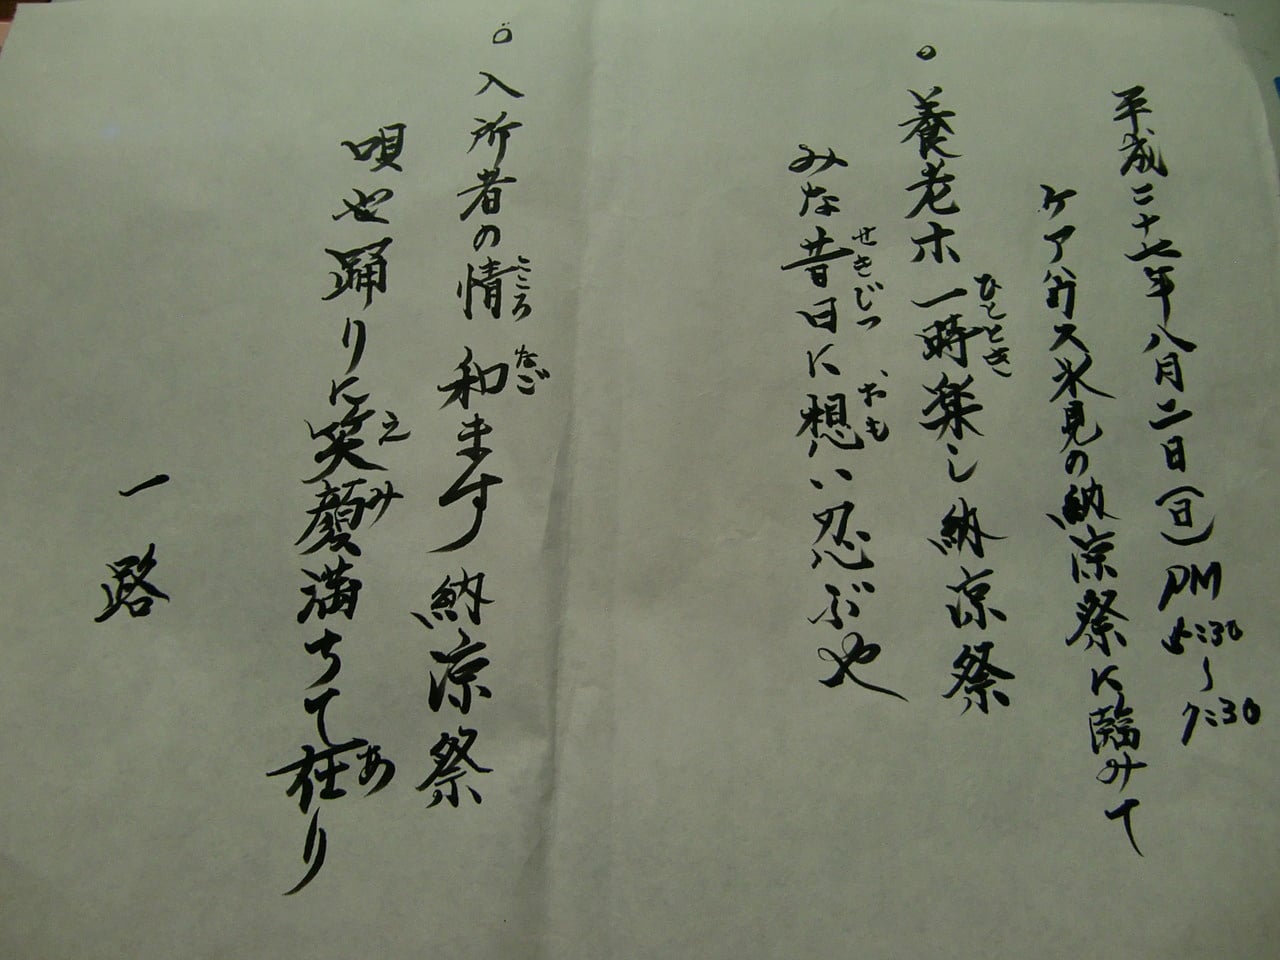 平成二十七年八月二日(日)PM 5:30〜7:30
ケアハウス氷見の納涼祭に臨みて
。養老ホ一時楽し納涼祭
ひととき
みな昔日に想い忍ぶや
せきじつ おも
。入所者の情和ます納涼祭
こころ なご
唄や踊りに笑顔満ちて在り
えみ あ
一路